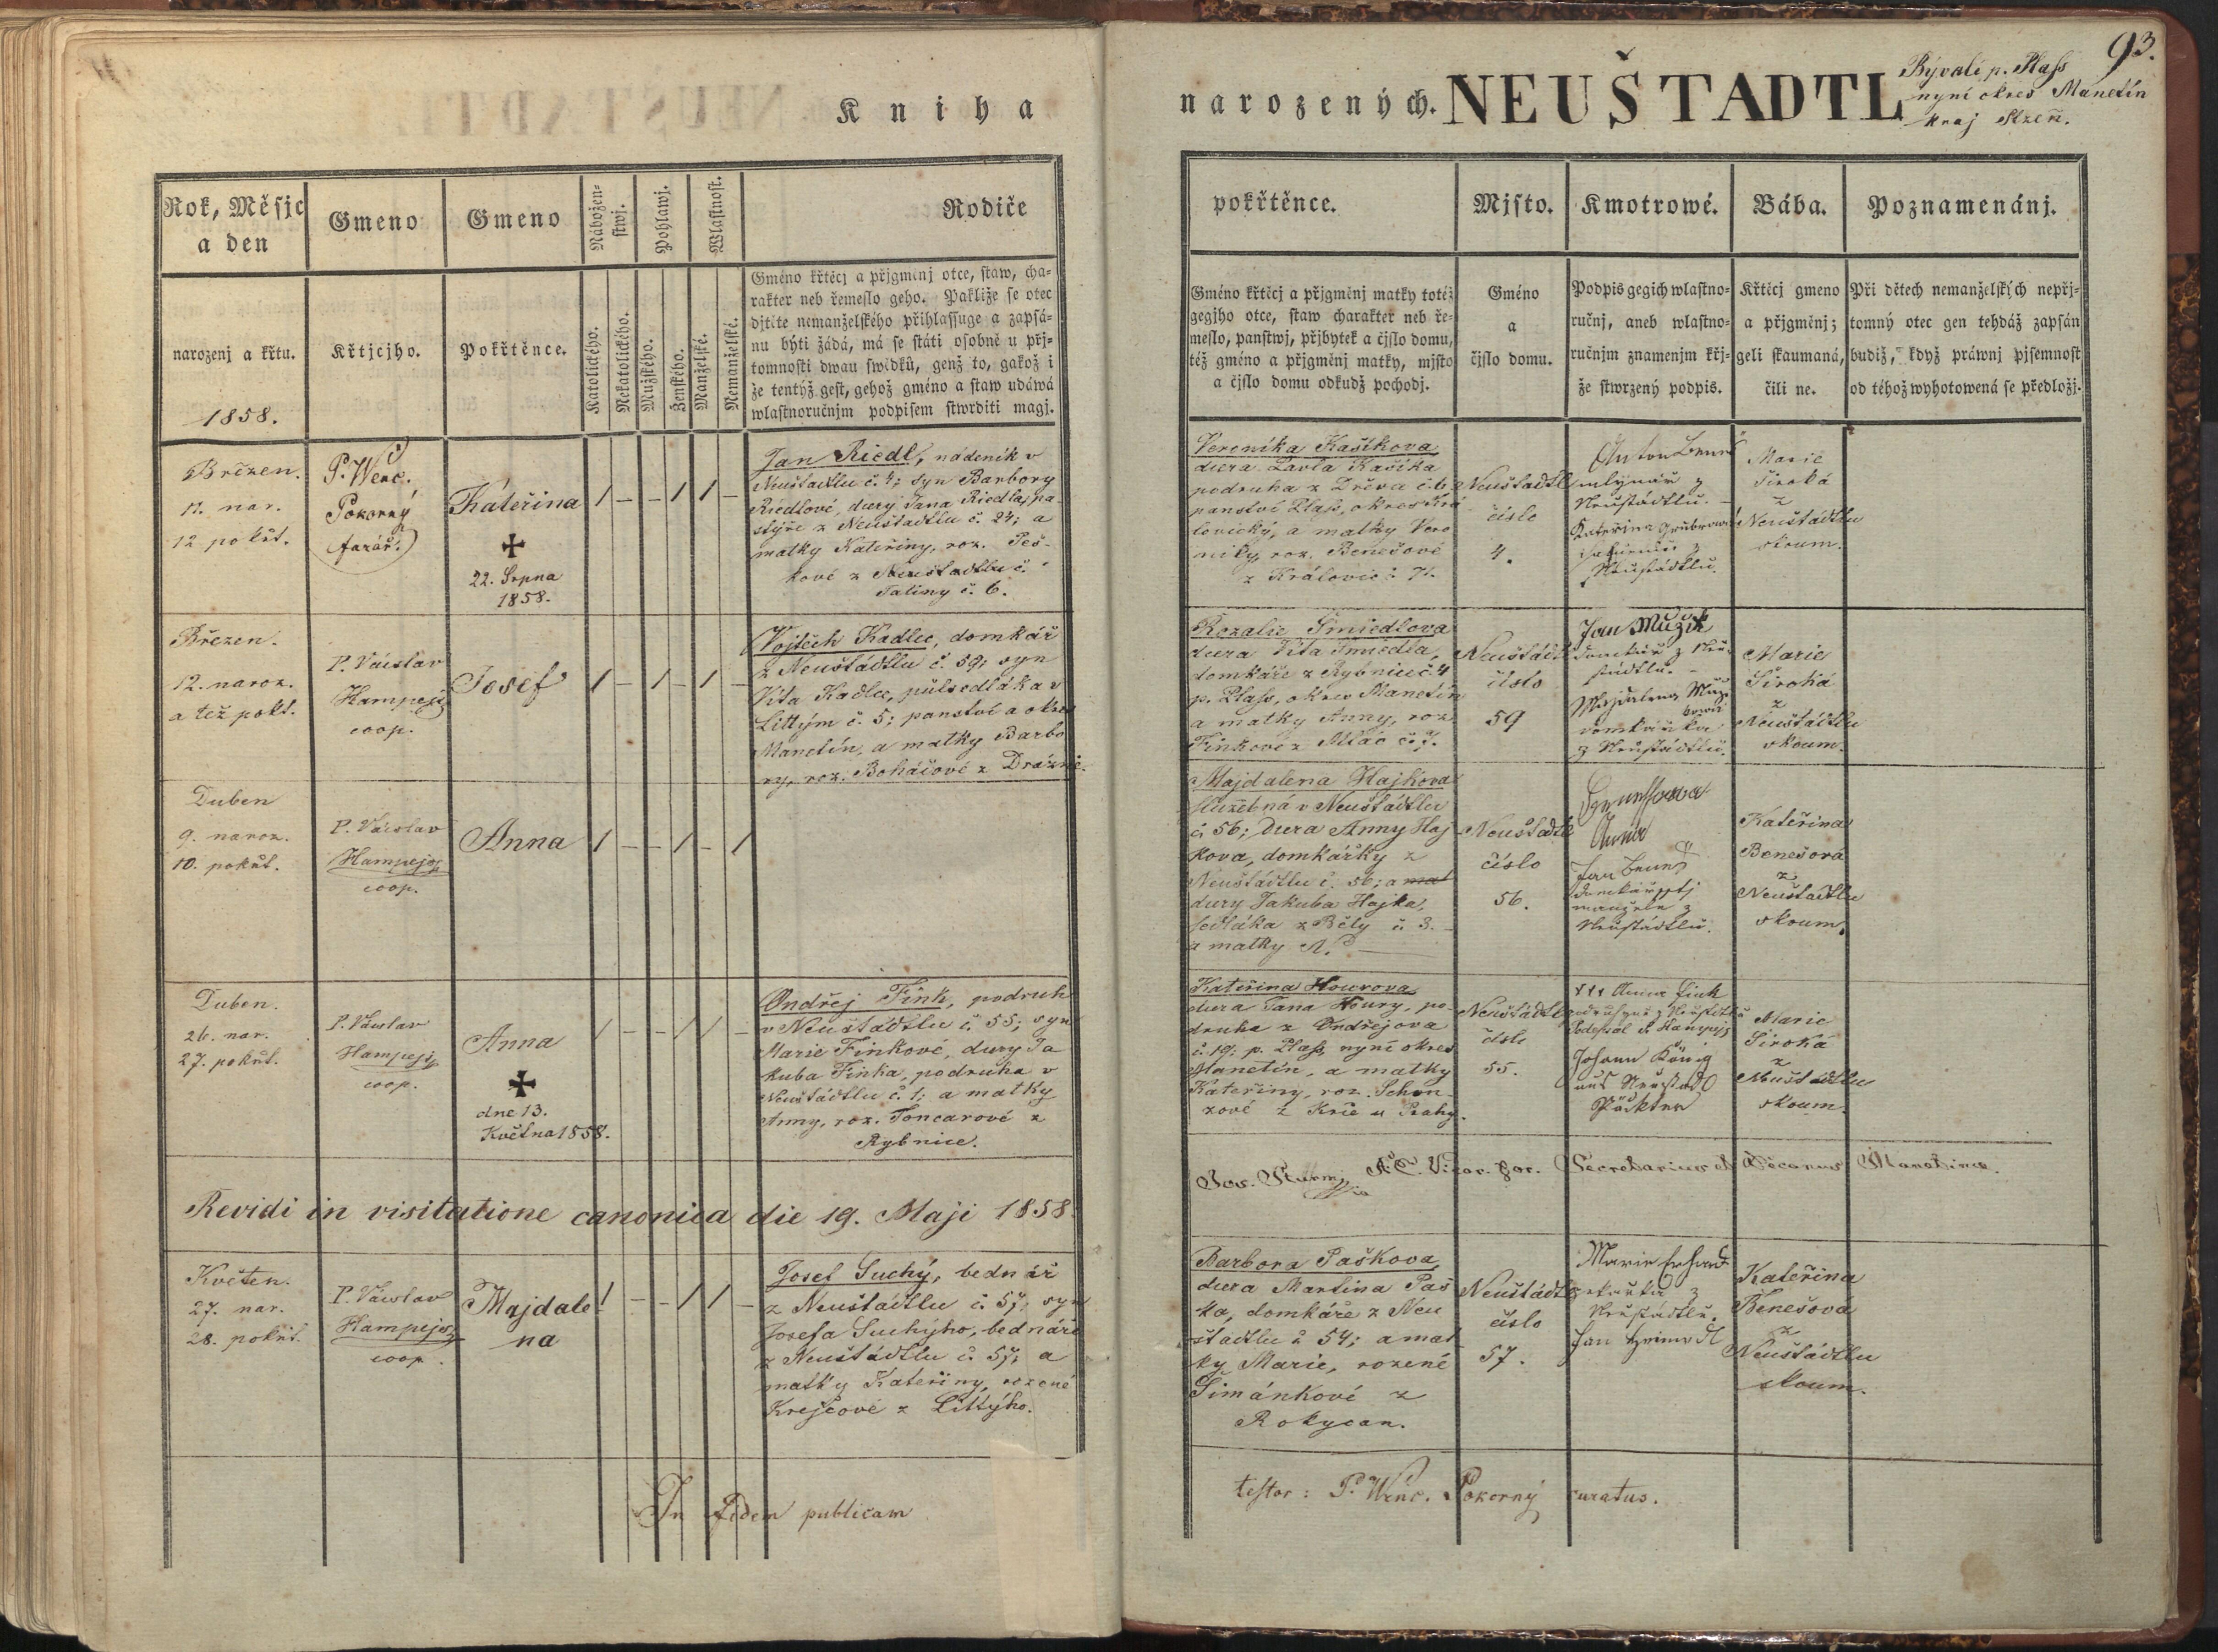 Kniha
Rok, Měsjc
a den
Gmeno
Gmeno
Nábožen-
stwj.
Pohlawj.
Wlastnost.
Rodiče
narozenj a křtu.
1858.
Křtjcjho.
Pokřtěnce.
Katolického.
Nekatolického.
Mužského.
Ženského.
Manželské.
Nemanželské.
Gméno křtěcj a přjgmenj otce, staw, cha-
rakter neb řemeslo geho. Pakliže se otec
djtěte nemanželského přihlassuge a zapsá-
nu býti žádá, má se státi osobně u přj-
tomnosti dwau swědků, genž to, gakož i
že tentýž gest, gehož gméno a staw udáwá
wlastnoručnjm podpisem stwrditi magj.
Březen.
11. nar.
12 pokřt.
P. Wenc.
Pokorný
farář.
Kateřina
22. Srpna
1858.
Jan Riedl, nádeník v
Neustadtlu č. 4; syn Barbory
Riedlové, dcery Jana Riedla, pa-
stýře z Neustadtlu č. 24; a
matky Kateřiny, roz. Peš-
kové z Neustadtlu č.
Taliny č. 6.
Březen.
12. naroz.
a též pokt.
P. Václav
Hampejs
coop.
Josef
Vojtěch Kadlec, domkář
z Neuštádtlu č. 59; syn
Víta Kadlec, půlsedláka v
Littým č. 5; panství a okres
Manetín, a matky Barbo
ry, roz. Boháčové z Drážně.
Duben
9. naroz.
10. pokřt.
P. Václav
Hampejs
coop.
Anna
Duben.
26. nar.
27. pokřt.
P. Václav
Hampejs
coop.
Anna
dne 13.
Května 1858.
Ondřej Fink, podruh
v Neustádtlu č. 55; syn
Marie Finkové, dcery Ja
kuba Finka, podruha v
Neuštádtlu č. 1; a matky
Anny, roz. Toncarové z
Rybnice.
Revidi in visitatione canonica die 19. Maji 1858.
Květen.
27. nar.
28. pokřt.
P. Václav
Hampejs
coop.
Majdale
na
Josef Suchý, bednář
z Neuštádtlu č. 57, syn
Josefa Suchýho, bednáře
z Neuštádtlu č. 57; a
matky Kateřiny, rozené
Krejčové z Littýho.
In fidem publicam
narozených. NEUŠTADTL
Bývalé p. Plass
nyní okres Manetín
kraj Plzeň.
93.
pokřtěnce.
Mjsto.
Kmotrowé.
Bába.
Poznamenánj.
Gméno křtěcj a přjgměnj matky totéž
gegjho otce, staw charakter neb ře-
meslo, panstwj, přjbytek a čjslo domu,
též gméno a přjgměnj matky, mjsto
a čjslo domu odkudž pochodj.
Gméno
a
čjslo domu.
Podpis gegich wlastno-
ručnj, aneb wlastno-
ručnjm znamenjm křj-
že stwrzený podpis.
Křtěcj gmeno
a přjgměnj;
geli skaumaná,
čili ne.
Při dětech nemanželských nepřj-
tomný otec gen tehdáž zapsán
budiž, když práwnj pjsemnost
od téhož wyhotowená se předložj.
Veronika Kašíkova
dcera Pavla Kašíka
podruha z Dřeva č. 6
panství Plass, okres Krá
lovický, a matky Vero
niky, roz. Benešové
z Královic č. 71.
Neustadtl
číslo
4.
mlynář z
Neustádtlu.
Kateřina Gruberová
z
Neustádtlu.
Marie
Široká
z
Neustádtlu
skoum.
Rozalie Šmiedlova
dcera Víta Šmiedla,
domkáře z Rybnice č. 4
p. Plass, okres Manetín
a matky Anny, roz.
Finkové z Mlac č. 7.
Neuštádtl
číslo
59
Jan Mužík
domkář z Neu-
stádtlu.
Majdalena Muzi
kowá
domkářka
z Neustádtlu.
Marie
Široká
z
Neuštádtlu
skoum.
Majdalena Hajkova
služebná v Neuštádtlu
č. 56; dcera Anny Haj
kova, domkářky z
Neuštádtlu č. 56; a mat
dcery Jakuba Hajka,
sedláka z Běly č. 3.
a matky N.
Neustadtl
číslo
56.
Anna
Jan Beneš
manžele z
Neustádtlu.
Kateřina
Benešová
z
Neuštádtlu
skoum.
Kateřina Hourova
dcera Jana Houry, po-
druha z Ondřejova
č. 19. p. Plass, nyní okres
Manetín, a matky
Kateřiny, roz. Schön-
zové z Krče u Prahy.
Neustadtl
číslo
55.
+++ Anna Fink
podruhyně z Neustádtlu
Podepsal P. Hampejs
Johann König
aus Neustadl
Päckter
Marie
Široká
z
Neuštádtlu
skoum.
Jos. Sturm, A.C. Vicar. For. Secretarius et Decanus Manetinæ.
Barbora Paškova,
dcera Martina Paš
ka, domkáře z Neu
štadtlu č. 54; a mat
ky Marie, rozené
Šimánkové z
Rokycan.
Neuštádtl
číslo
57.
Marie Erhard
z
Neustádtlu.
Jan
Kateřina
Benešová
z
Neuštádtlu
skoum.
testor: P. Wenc. Pokorný curatus.